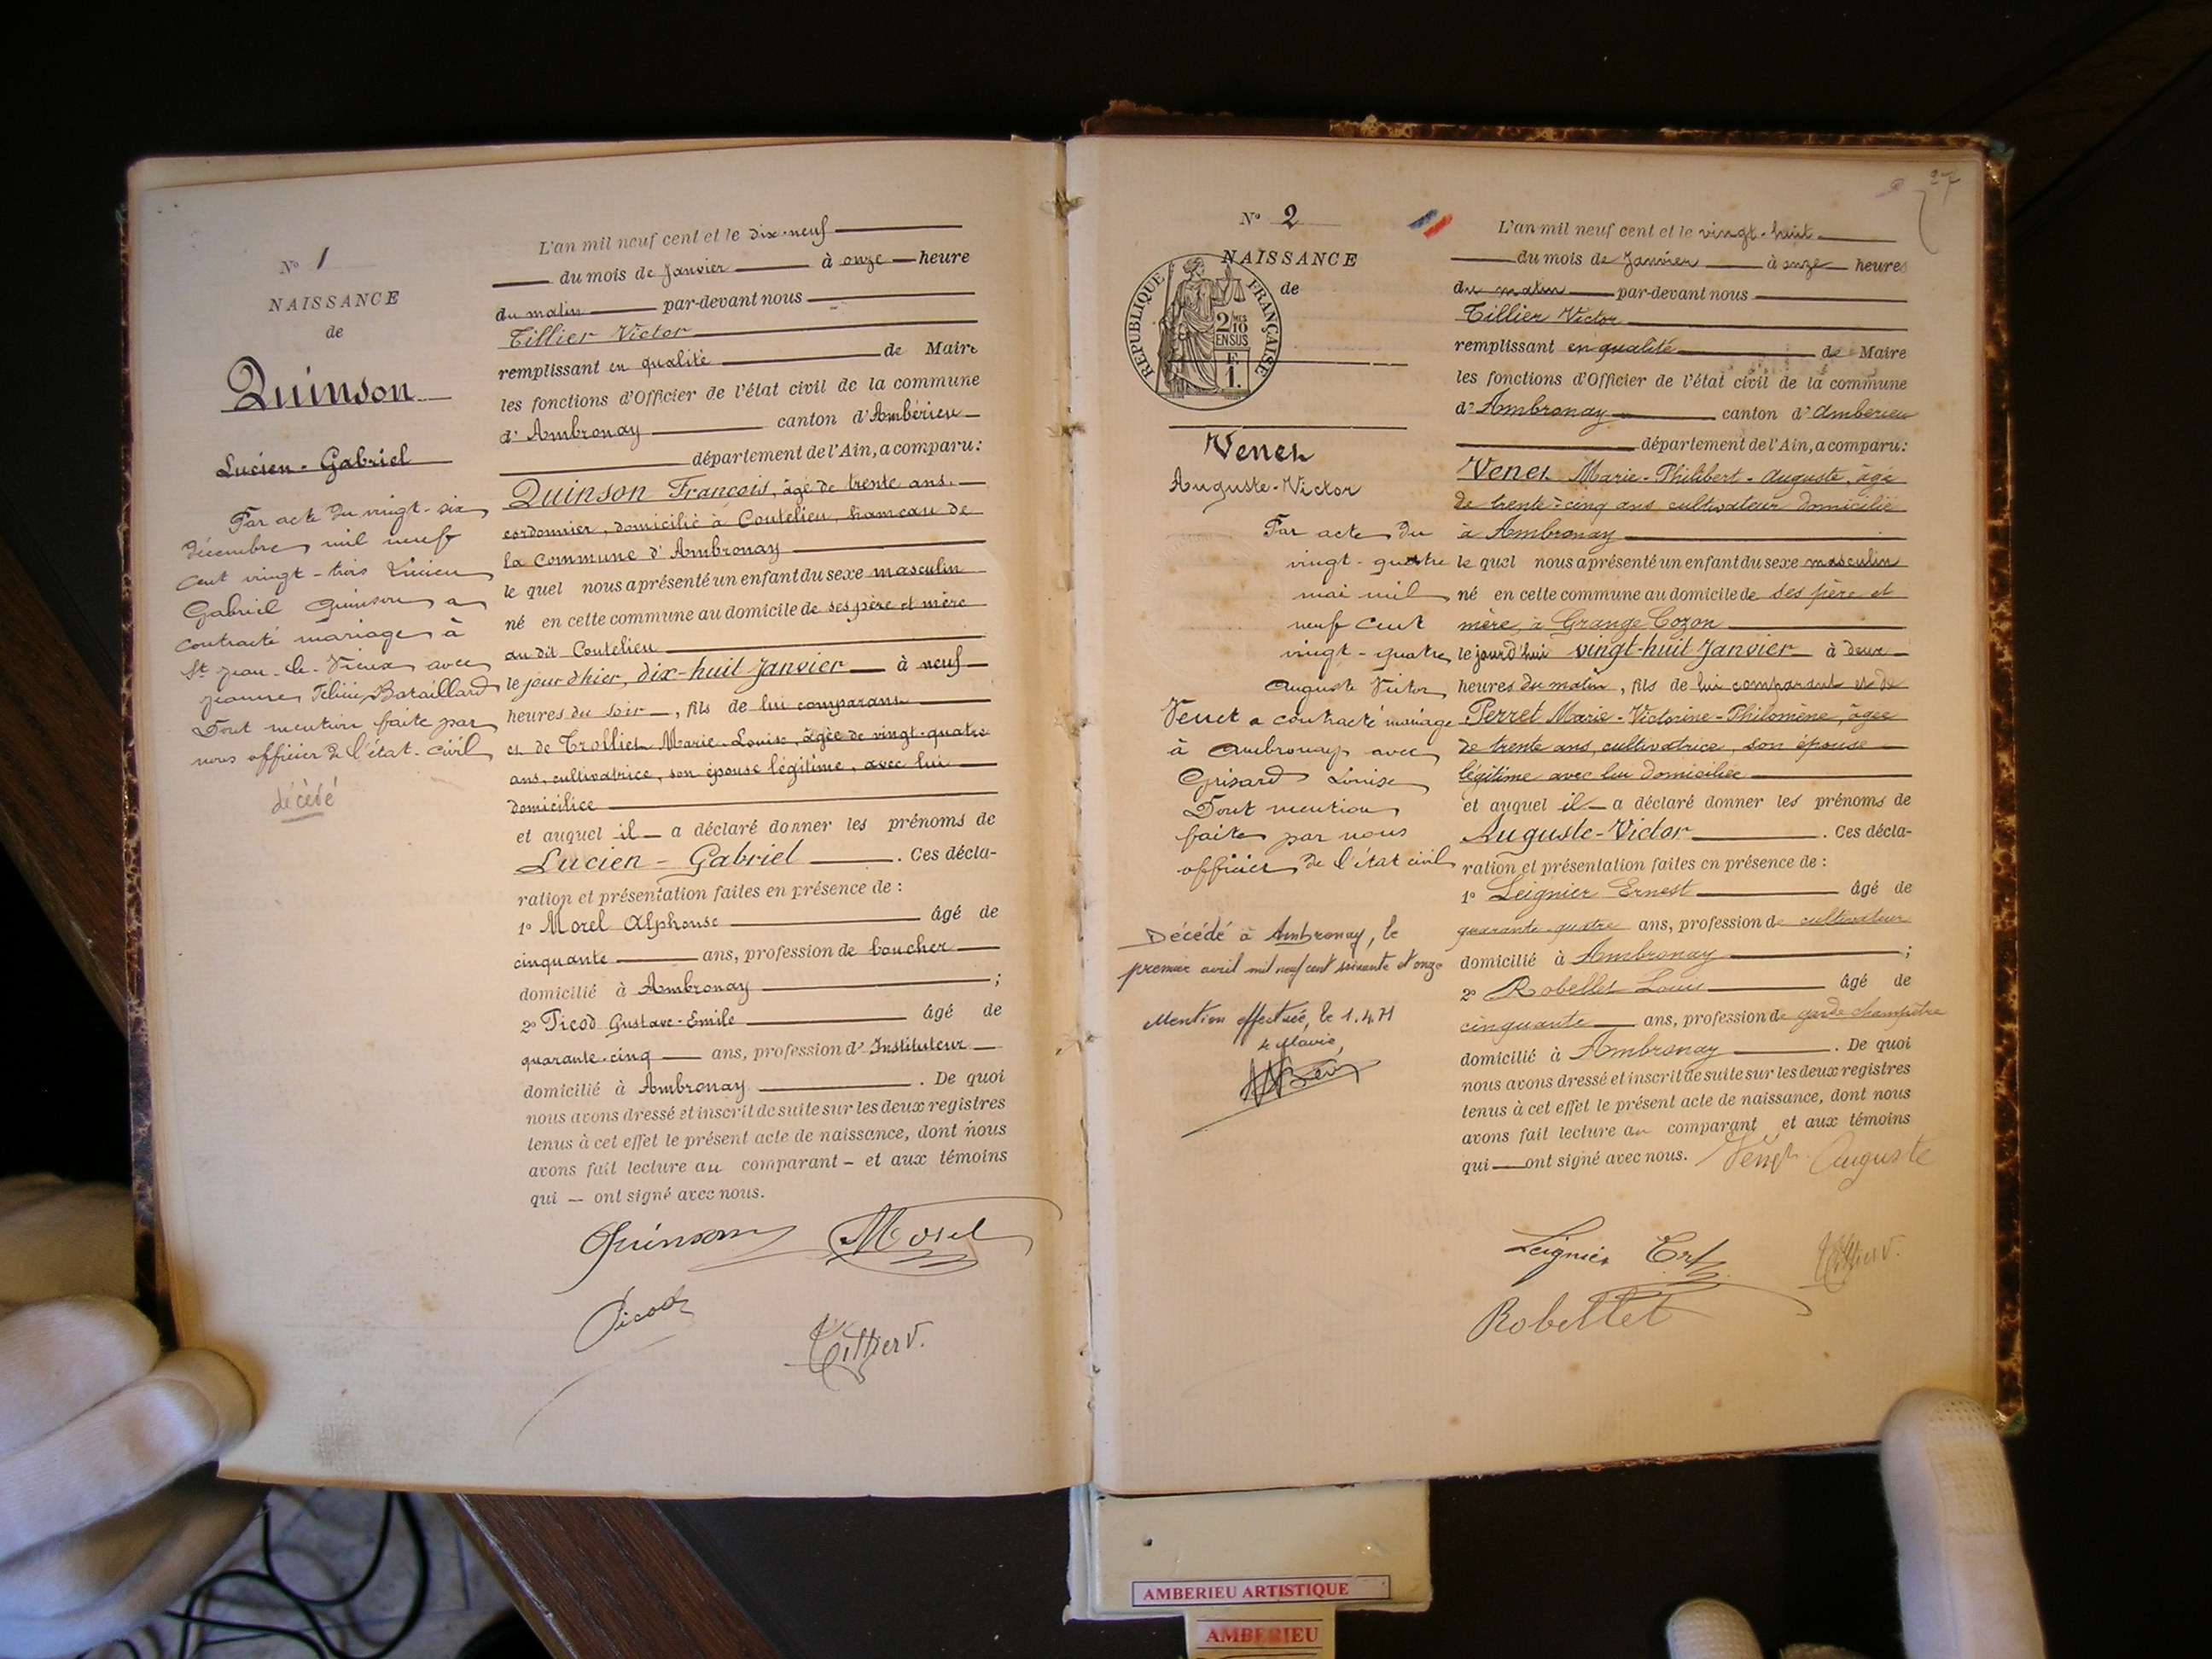 N° 1
NAISSANCE
de
Quinson
Lucien-Gabriel
Par acte du vingt-six
décembre mil neuf
cent vingt-trois Lucien
Gabriel Quinson a
contracté mariage à
St Jean-le-Vieux avec
Jeanne Félicie Bataillard
Dont mention faite par
nous officier de l'état-civil
décédé
L'an mil neuf cent et le dix-neuf
du mois de Janvier à onze heure
du matin par-devant nous
Tillier Victor
remplissant en qualité de Maire
les fonctions d'Officier de l'état civil de la commune
d'Ambronay canton d'Ambérieu
département de l'Ain, a comparu:
Quinson François, âgé de trente ans,
cordonnier, domicilié à Coutelieu, hameau de
la Commune d'Ambronay
le quel nous a présenté un enfant du sexe masculin
né en cette commune au domicile de ses père et mère
au dit Coutelieu
le jour d'hier, dix-huit Janvier à neuf
heures du soir, fils de lui comparant
et de Trolliet Marie-Louise, âgée de vingt-quatre
ans, cultivatrice, son épouse légitime, avec lui
domiciliée
et auquel il a déclaré donner les prénoms de
Lucien-Gabriel. Ces décla-
ration et présentation faites en présence de :
1° Morel Alphonse âgé de
cinquante ans, profession de boucher
domicilié à Ambronay ;
2° Picod Gustave-Emile âgé de
quarante-cinq ans, profession d'Instituteur
domicilié à Ambronay. De quoi
nous avons dressé et inscrit de suite sur les deux registres
tenus à cet effet le présent acte de naissance, dont nous
avons fait lecture au comparant – et aux témoins
qui – ont signé avec nous.
Quinson Morel
Picod Tillier V.
27
N° 2
NAISSANCE
de
RÉPUBLIQUE FRANÇAISE
2 MES
10
EN SUS
F.
1.
Venet
Auguste-Victor
Par acte du
vingt-quatre
mai mil
neuf cent
vingt-quatre
Auguste Victor
Venet a contracté mariage
à Ambronay avec
Grisard Louise
Dont mention
faite par nous
officier de l'état civil
Décédé à Ambronay, le
premier avril mil neuf cent soixante et onze
Mention effectuée, le 1.4.71
le Maire,
L'an mil neuf cent et le vingt-huit
du mois de Janvier à onze heures
du matin par-devant nous
Tillier Victor
remplissant en qualité de Maire
les fonctions d'Officier de l'état civil de la commune
d'Ambronay canton d'Ambérieu
département de l'Ain, a comparu:
Venet Marie-Philibert-Auguste, âgé
de trente-cinq ans cultivateur domicilié
à Ambronay
le quel nous a présenté un enfant du sexe masculin
né en cette commune au domicile de ses père et
mère, à Grange Cozon
le jourd'hui vingt-huit Janvier à deux
heures du matin, fils de lui comparant et de
Perret Marie-Victorine-Philomène, âgée
de trente ans, cultivatrice, son épouse
légitime avec lui domiciliée
et auquel il a déclaré donner les prénoms de
Auguste-Victor. Ces décla-
ration et présentation faites en présence de :
1° Leignier Ernest âgé de
quarante-quatre ans, profession de cultivateur
domicilié à Ambronay ;
2° Robellet Louis âgé de
cinquante ans, profession de garde champêtre
domicilié à Ambronay. De quoi
nous avons dressé et inscrit de suite sur les deux registres
tenus à cet effet le présent acte de naissance, dont nous
avons fait lecture au comparant et aux témoins
qui ont signé avec nous. Venet Auguste
Leignier Ert Tillier V.
Robellet
AMBERIEU ARTISTIQUE
AMBERIEU